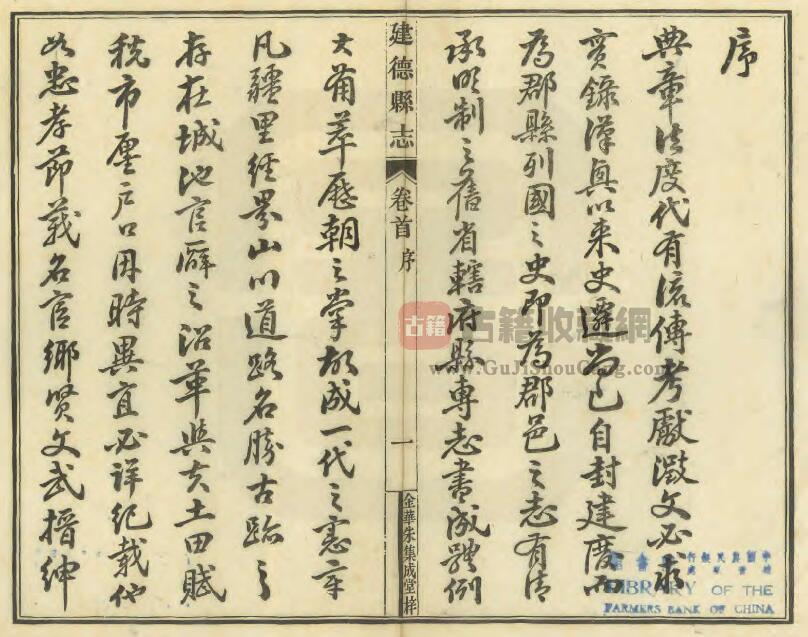 序
典章法度代有流傳考獻徵文必求
實錄漢興以来史遷尚已自封建廢而
為郡縣列國之史即為郡邑之志有清
承明制之舊省轄府縣專志書成體例
建德縣志
卷首 序
一
金華朱集成堂梓
大備萃歷朝之掌故成一代之憲章
凡疆里經界山川道路名勝古蹟之
存在城池官廨之沿革與夫土田賦
税市廛户口因時異宜必詳紀載他
如忠孝節義名宦鄉贤文武搢紳
古籍 古籍收藏網
www.GuJiShouCang.com
LIBRARY OF THE
FARMERS BANK OF CHINA